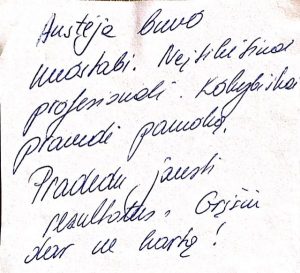 Austėja buvo
nuostabi. Neįtikėtinai
profesionali. Kokybiškai
praveda pamoką.
Pradedu jausti
rezultatus. Grįšiu
dar ne kartą!